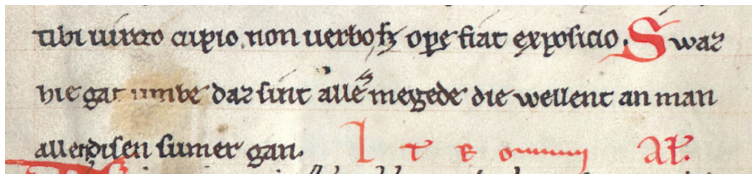 tibi uirgo cupio. non uerbosꝫ oꝑe fiat exposicio. Swaz
hie gat umbe daz sint alle megede die wellent an man
allen disen sumer gan.